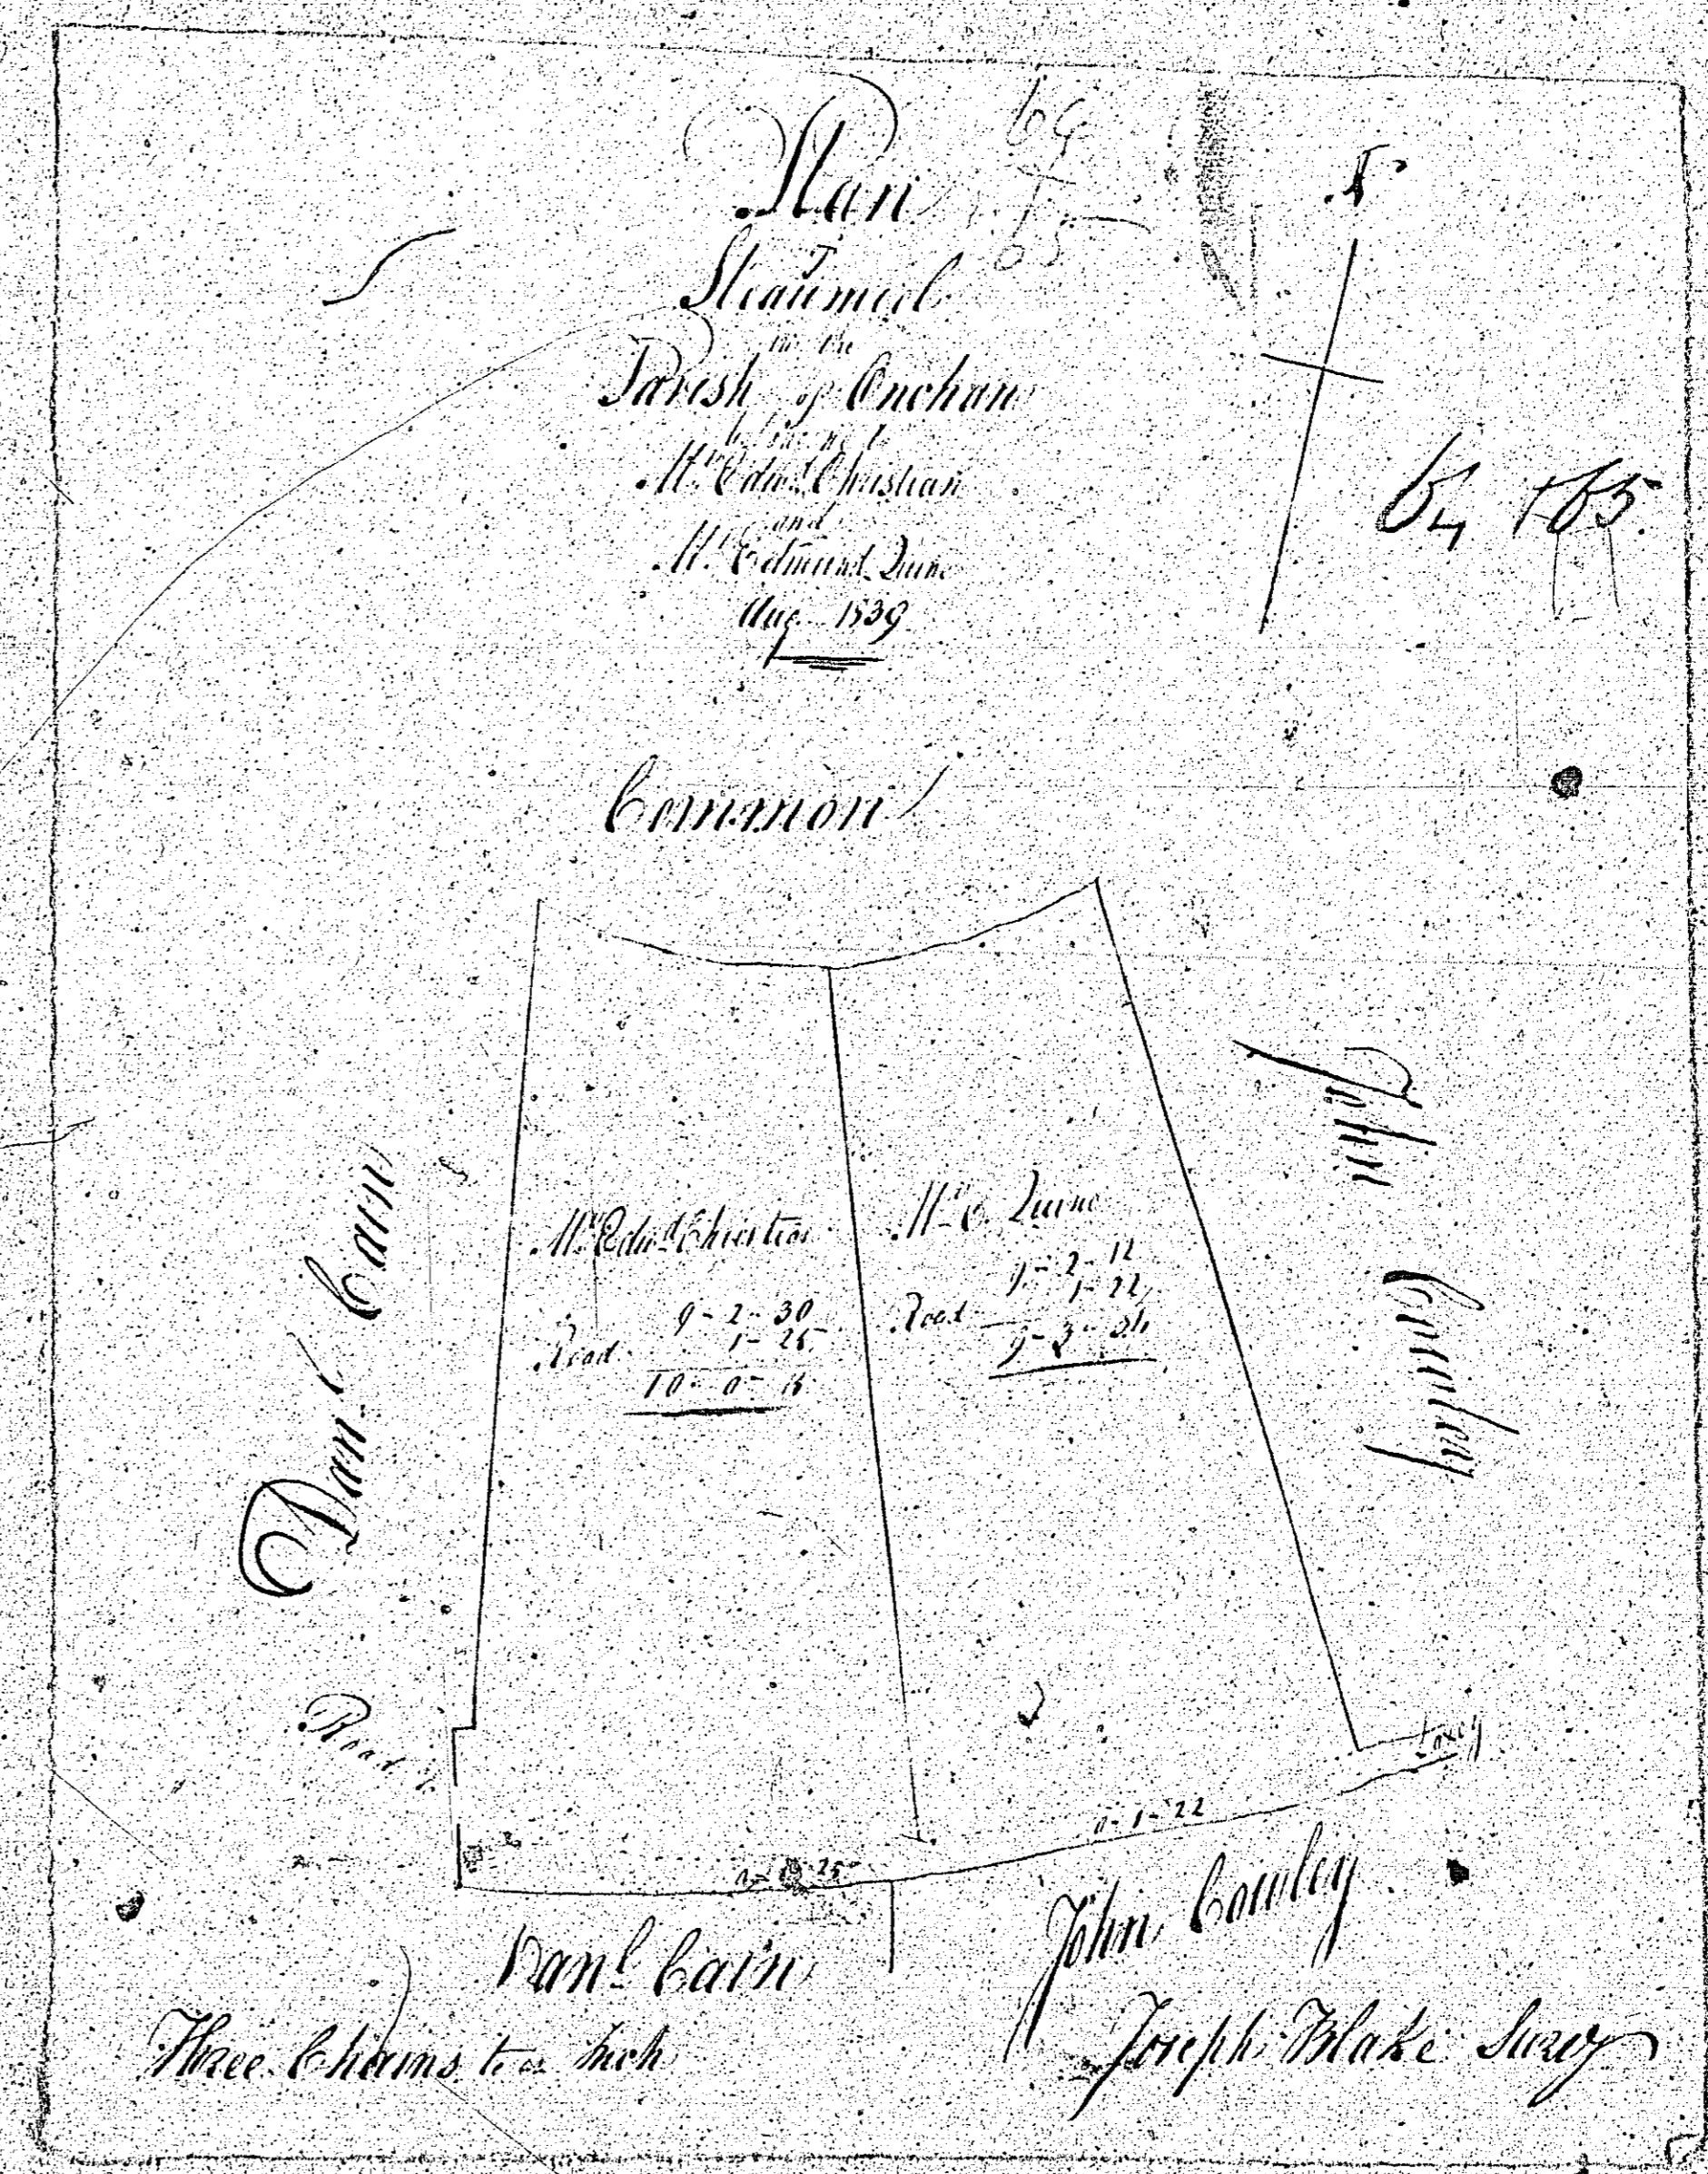 Plan
of
in the
Parish of Onchan
belonging to
Mr. Edwd. Christian
and
Mr. Edmund Quine
Aug 1839
N
64 + 65.
64
+
65
Common
Danl. Cain
John Cowley
Mr. Edwd. Christian
9 - 2 - 30
Road 1 - 25
10 - 0 - 15
Mr. E. Quine
9 - 2 - 12
Road 1 - 22
9 - 3 - 34
Road to
Laxey
0 - 1 - 25
0 - 1 - 22
Danl. Cain
John Cowley
Three Chains to an Inch
Joseph Blake Survy